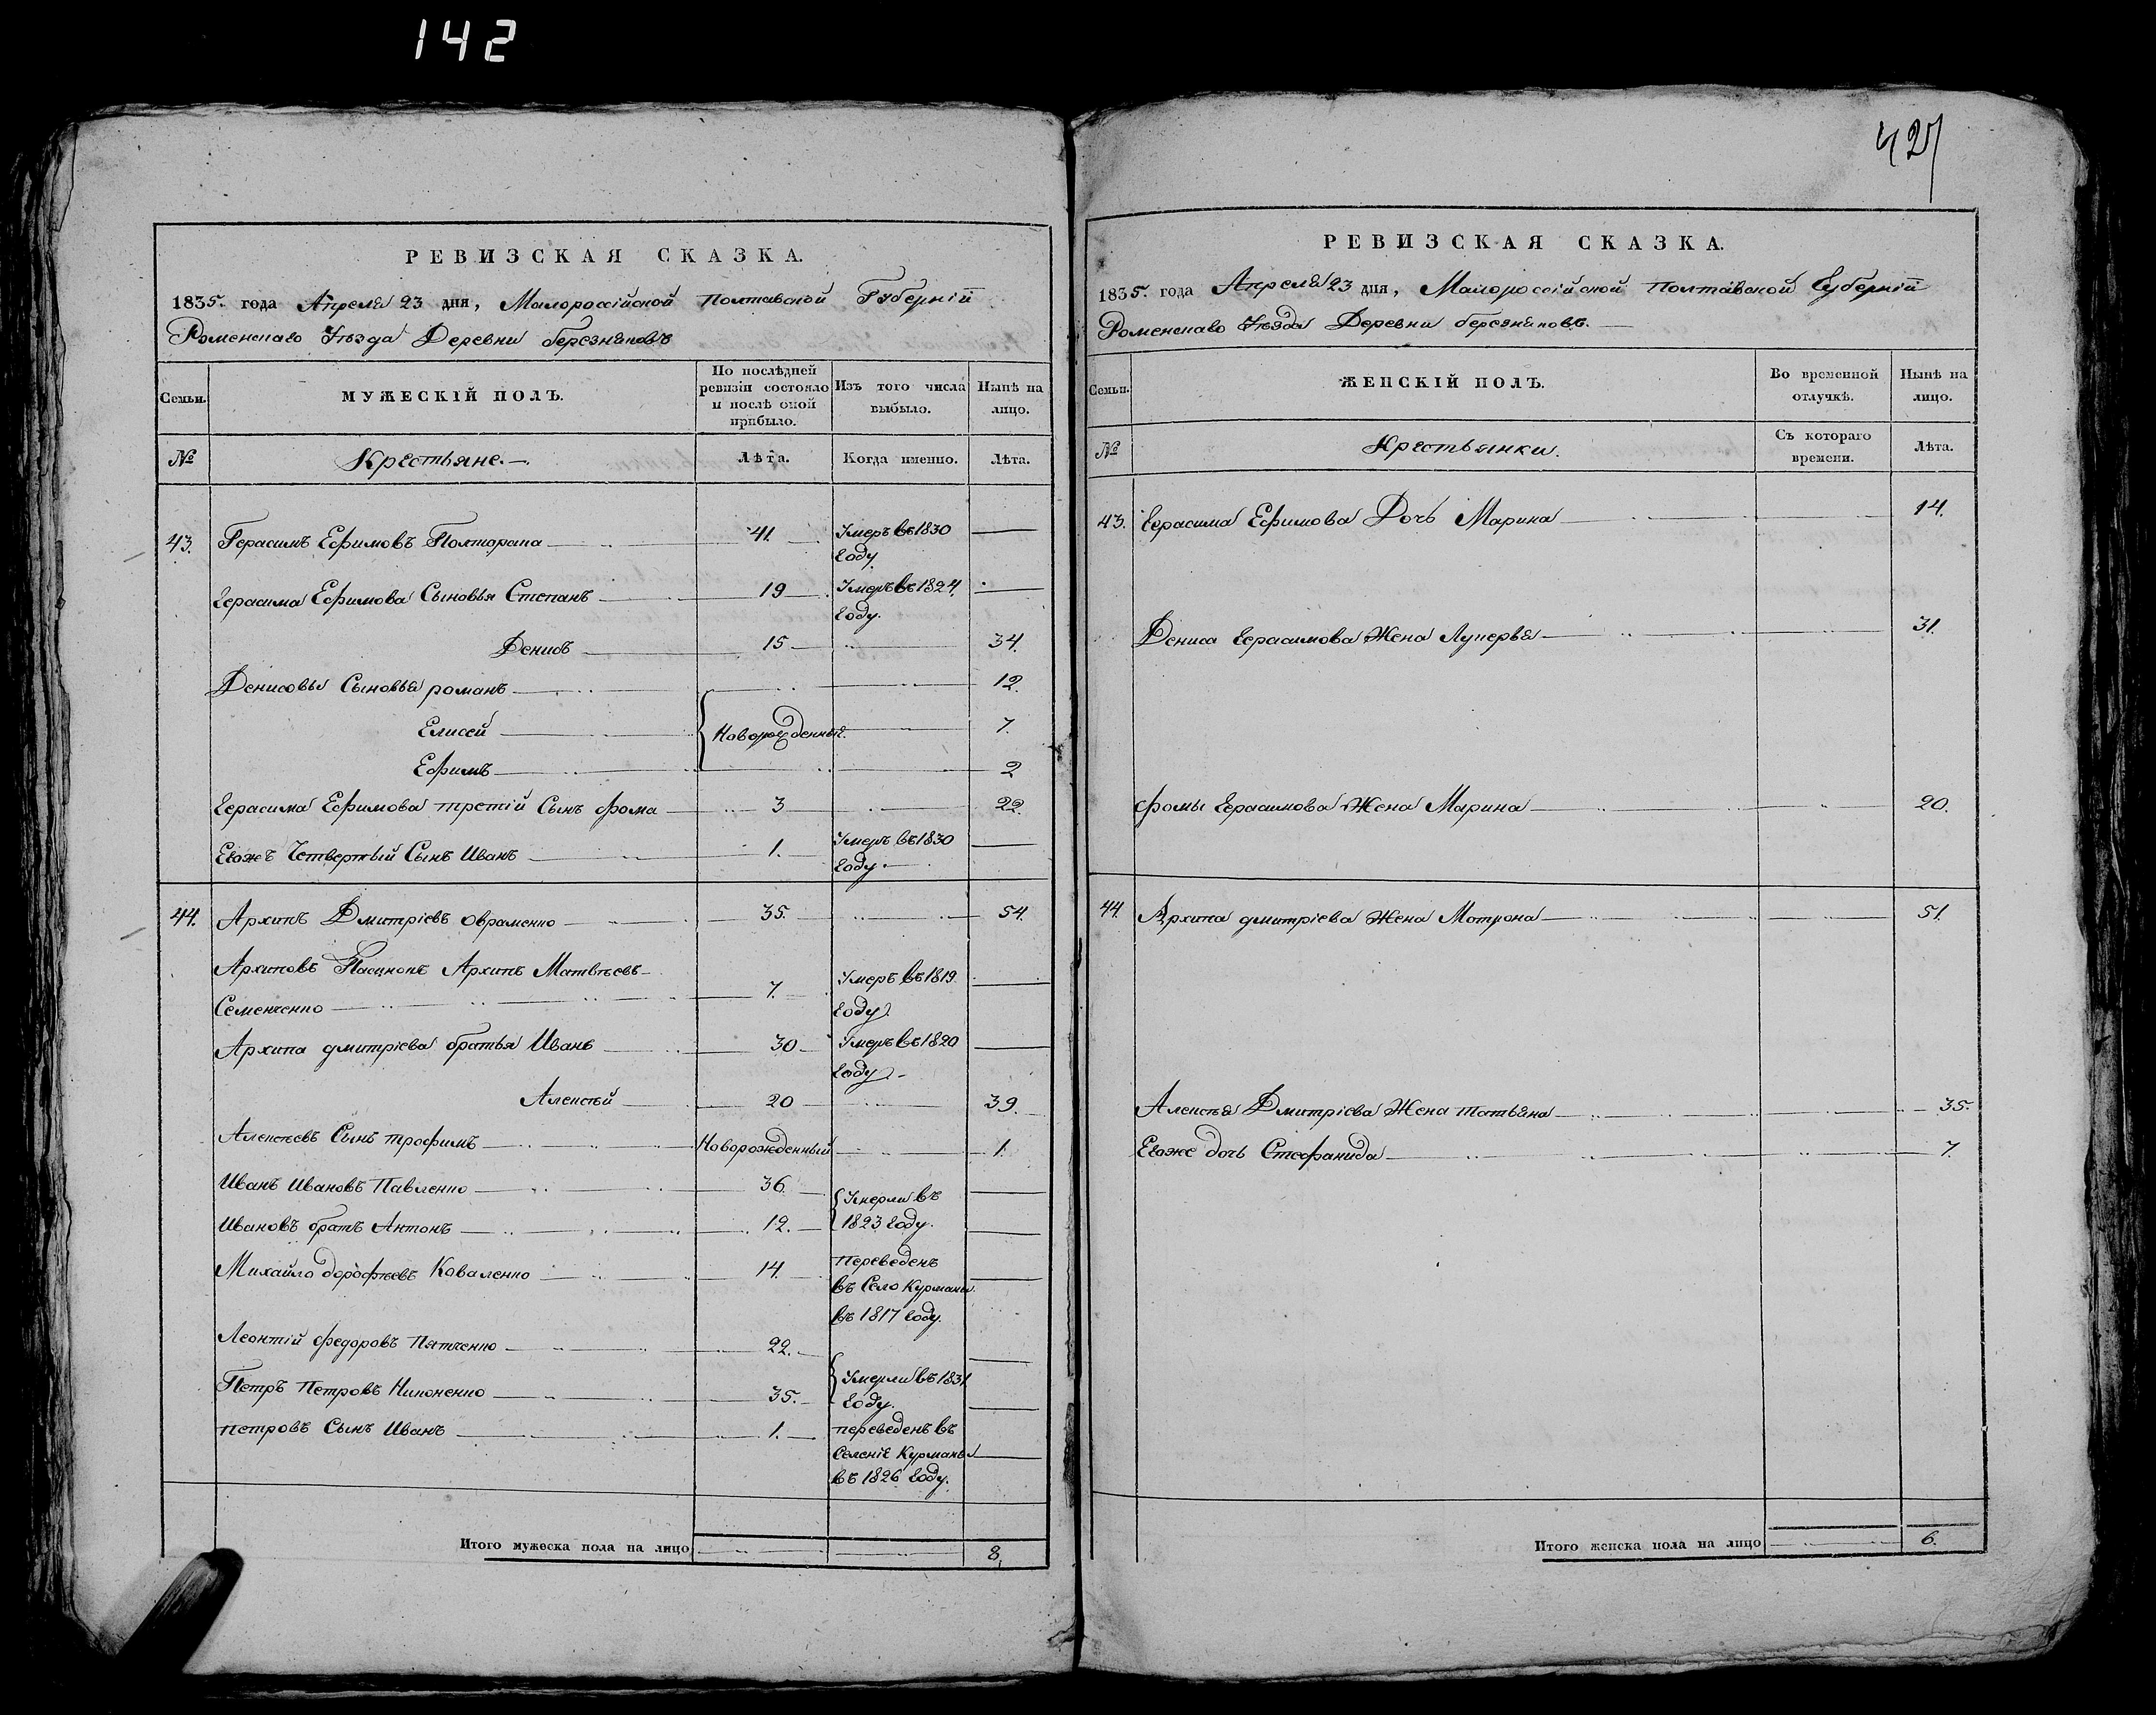 142
427
РЕВИЗСКАЯ СКАЗКА.
1835. года Апреля 23 дня, Малороссійской Полтавской Губерніи
Роменскаго Уѣзда Деревни березняковъ
Семьи.
МУЖЕСКІЙ ПОЛЪ.
По послѣдней ревизіи состояло и послѣ оной прибыло.
Изъ того числа выбыло.
Нынѣ на лицо.
№ Крестьяне. Лѣта. Когда именно. Лѣта.
43. Герасимъ Ефимовъ Полторапа 41. Умеръ въ 1830
году.
Герасима Ефимова Сыновья Степанъ 19 Умеръ въ 1824.
году.
Денисъ 15 34.
Денисовы Сыновья романъ 12.
Елисей Новорожденные. 7.
Ефимъ 2
Герасима Ефимова третій Сынъ фома 3 22.
Егожъ Четвертый Сынъ Иванъ 1. Умеръ въ 1830
году.
44. Архипъ Дмитріевъ Овраменко 35. 54.
Архиповъ Пасынокъ Архипъ Матвѣевъ
Семенченко 7. Умеръ въ 1819
году.
Архипа дмитріева братья Иванъ 30 Умеръ въ 1820
году.
Алексѣй 20 39.
Алексѣевъ Сынъ трофимъ Новорожденный 1.
Иванъ Ивановъ Павленко 36. Умерли въ
Ивановъ братъ Антонъ 12. 1823 году.
Михайло дорофѣевъ Коваленко 14. Переведенъ
въ Село Курманы
въ 1817 году.
Леонтій федоровъ Пятченко 22.
Петръ Петровъ Никоненко 35. Умерли въ 1831
году.
петровъ Сынъ Иванъ 1. переведенъ въ
Селеніе Курманы
въ 1826 году.
Итого мужеска пола на лицо 8.
РЕВИЗСКАЯ СКАЗКА.
1835. года Апреля 23 дня, Малороссійской Полтавской Губерніи
Роменскаго Уѣзда Деревни березняковъ.
Семьи.
ЖЕНСКІЙ ПОЛЪ.
Во временной отлучкѣ.
Нынѣ на лицо.
№ Крестьянки. Съ котораго времени. Лѣта.
43. Герасима Ефимова Дочь Марина 14.
Дениса Герасимова Жена Лукерья 31.
фомы Герасимова Жена Марина 20.
44. Архипа дмитріева Жена Мотрона 51.
Алексѣя Дмитріева Жена татьяна 35.
Егоже дочь Стефанида 7.
Итого женска пола на лицо 6.